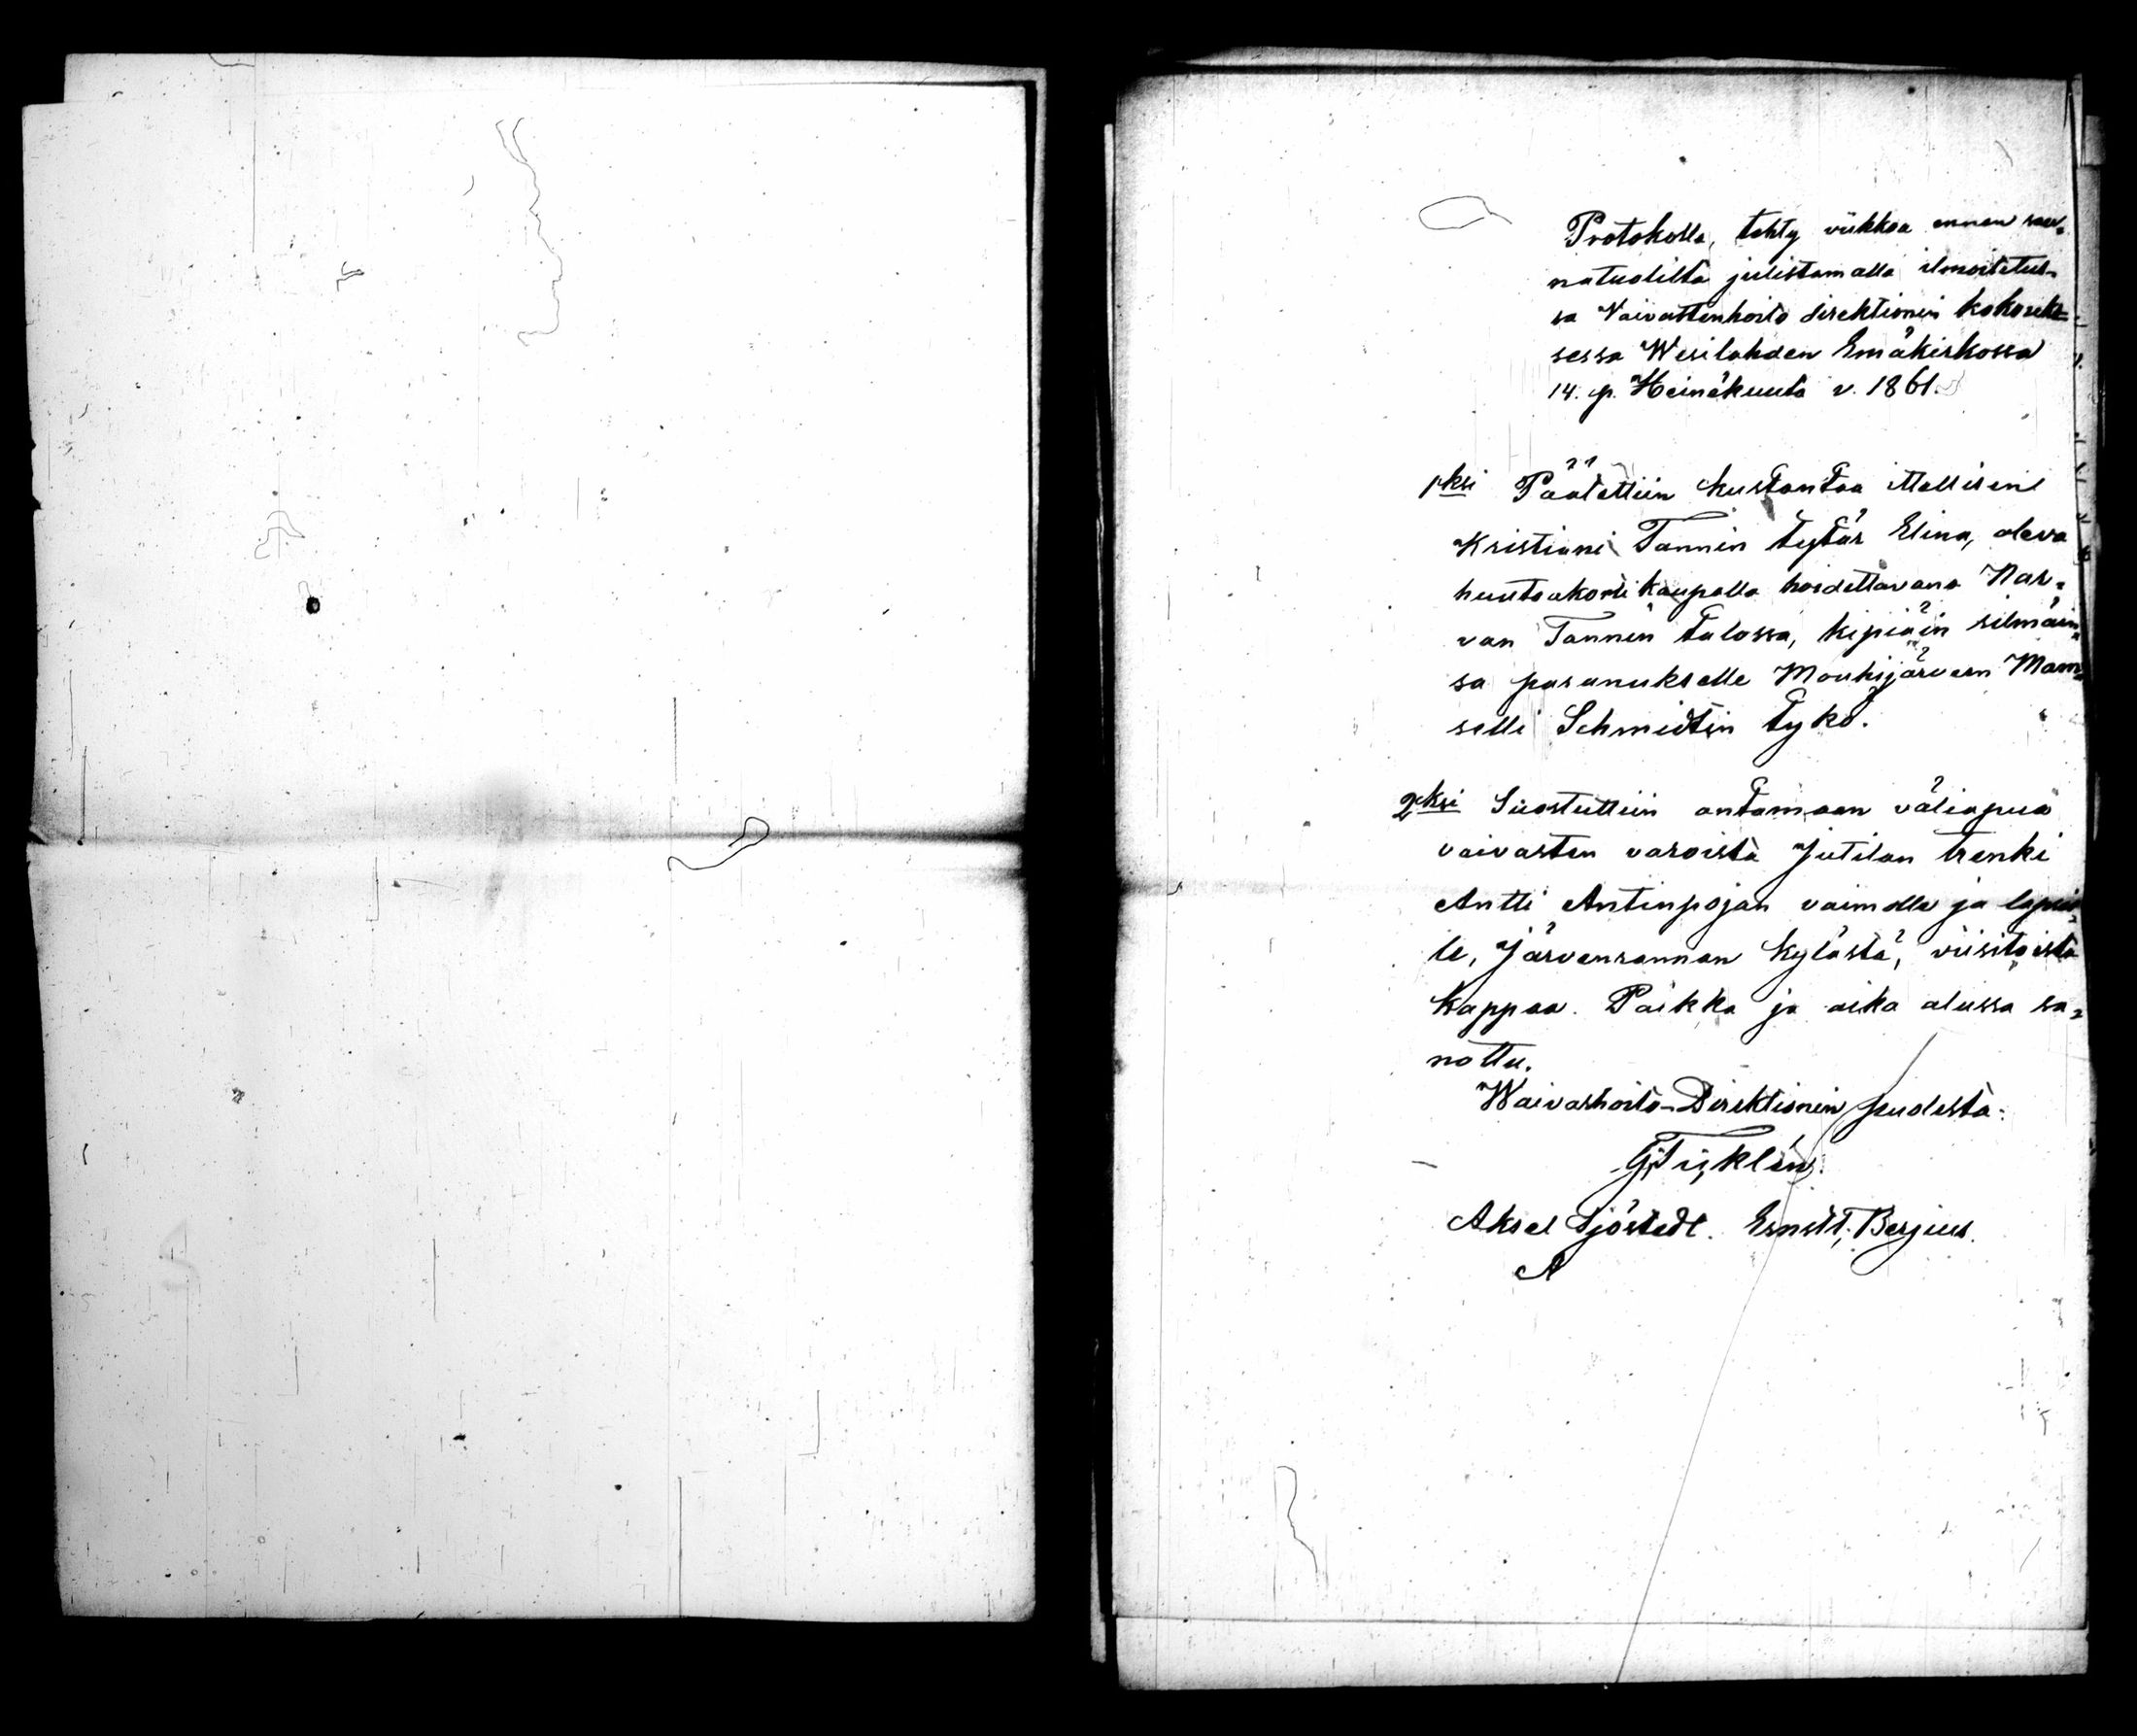 Protokolla, tehty viikkoa ennen saar-
natuolilta julistamalla ilmoitetus-
sa Vaivastenhoito direktionin kokouk-
sessa Wesilahden Emäkirkossa
14. p. Heinäkuuta v. 1861.
1ksi Päätettiin kustantaa itellisine
Kristiani Tannin tytär Elina, oleva
huutokorikaupalla hoidettavana Nar-
van Tannin talossa, kipiäin silmäin-
sä paranukselle Mouhijärven Mam-
selli Schmidtin tykö.
2ksi Suostuttiin antamaan väliapua
vaivasten varoista Jutilan trenki
Antti Antinpojan vaimolle ja lapsil-
le, Järvenrannan kylästä, viisitoista
kappaa. Paikka ja aika alussa sa-
nottu.
Waivashoito-Direktionin puolesta:
Aksel Sjöstedt. Ernst Bergius.
A